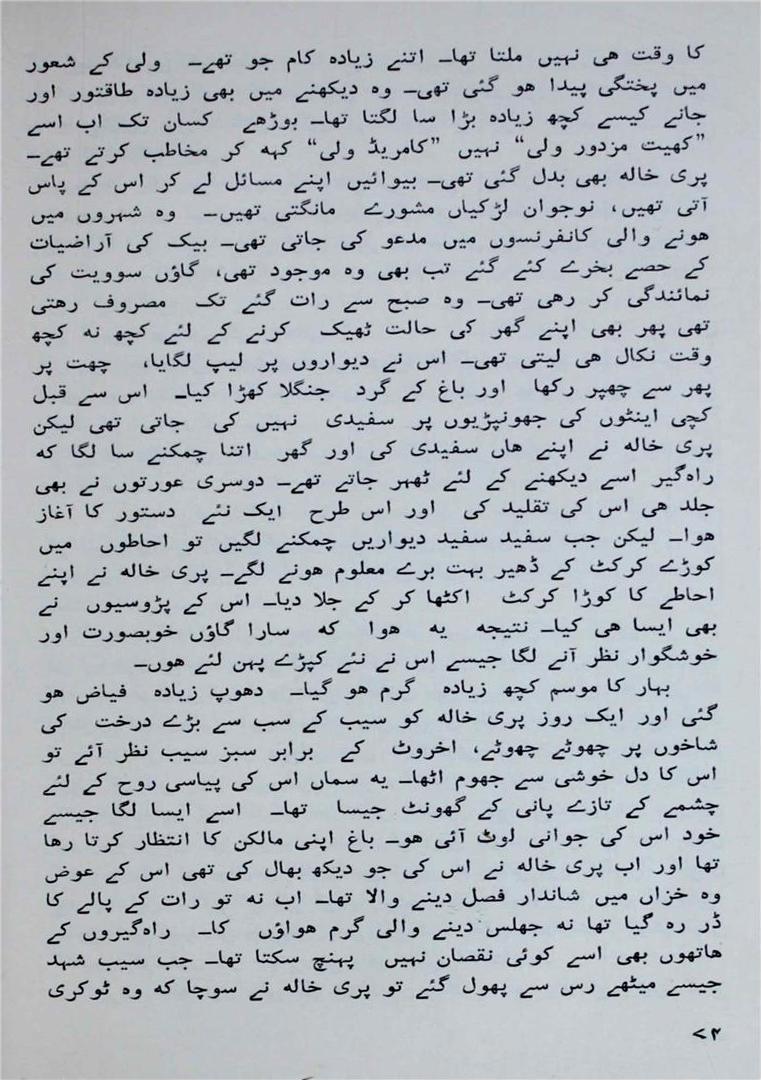 کا وقت ھی نہیں ملتا تھا۔ اتنے زیادہ کام جو تھے۔ ولی کے شعور
میں پختگی پیدا ھو گئی تھی۔ وہ دیکھنے میں بھی زیادہ طاقتور اور
جانے کیسے کچھ زیادہ بڑا سا لگتا تھا۔ بوڑھے کسان تک اب اسے
”کھیت مزدور ولی“ نہیں ”کامریڈ ولی“ کہہ کر مخاطب کرتے تھے۔
پری خالہ بھی بدل گئی تھی۔ بیوائیں اپنے مسائل لے کر اس کے پاس
آتی تھیں، نوجوان لڑکیاں مشورے مانگتی تھیں۔ وہ شہروں میں
ھونے والی کانفرنسوں میں مدعو کی جاتی تھی۔ بیک کی آراضیات
کے حصے بخرے کئے گئے تب بھی وہ موجود تھی، گاؤں سوویت کی
نمائندگی کر رھی تھی۔ وہ صبح سے رات گئے تک مصروف رھتی
تھی پھر بھی اپنے گھر کی حالت ٹھیک کرنے کے لئے کچھ نہ کچھ
وقت نکال ھی لیتی تھی۔ اس نے دیواروں پر لیپ لگایا، چھت پر
پھر سے چھپر رکھا اور باغ کے گرد جنگلا کھڑا کیا۔ اس سے قبل
کچی اینٹوں کی جھونپڑیوں پر سفیدی نہیں کی جاتی تھی لیکن
پری خالہ نے اپنے ھاں سفیدی کی اور گھر اتنا چمکنے سا لگا کہ
راہگیر اسے دیکھنے کے لئے ٹھہر جاتے تھے۔ دوسری عورتوں نے بھی
جلد ھی اس کی تقلید کی اور اس طرح ایک نئے دستور کا آغاز
ھوا۔ لیکن جب سفید سفید دیواریں چمکنے لگیں تو احاطوں میں
کوڑے کرکٹ کے ڈھیر بہت برے معلوم ھونے لگے۔ پری خالہ نے اپنے
احاطے کا کوڑا کرکٹ اکٹھا کر کے جلا دیا۔ اس کے پڑوسیوں نے
بھی ایسا ھی کیا۔ نتیجہ یہ ھوا کہ سارا گاؤں خوبصورت اور
خوشگوار نظر آنے لگا جیسے اس نے نئے کپڑے پہن لئے ھوں۔
بہار کا موسم کچھ زیادہ گرم ھو گیا۔ دھوپ زیادہ فیاض ھو
گئی اور ایک روز پری خالہ کو سیب کے سب سے بڑے درخت کی
شاخوں پر چھوٹے چھوٹے، اخروٹ کے برابر سبز سیب نظر آئے تو
اس کا دل خوشی سے جھوم اٹھا۔ یہ سماں اس کی پیاسی روح کے لئے
چشمے کے تازے پانی کے گھونٹ جیسا تھا۔ اسے ایسا لگا جیسے
خود اس کی جوانی لوٹ آئی ھو۔ باغ اپنی مالکن کا انتظار کرتا رھا
تھا اور اب پری خالہ نے اس کی جو دیکھ بھال کی تھی اس کے عوض
وہ خزاں میں شاندار فصل دینے والا تھا۔ اب نہ تو رات کے پالے کا
ڈر رہ گیا تھا نہ جھلس دینے والی گرم ھواؤں کا۔ راہگیروں کے
ھاتھوں بھی اسے کوئی نقصان نہیں پہنچ سکتا تھا۔ جب سیب شہد
جیسے میٹھے رس سے پھول گئے تو پری خالہ نے سوچا کہ وہ ٹوکری
۷۴